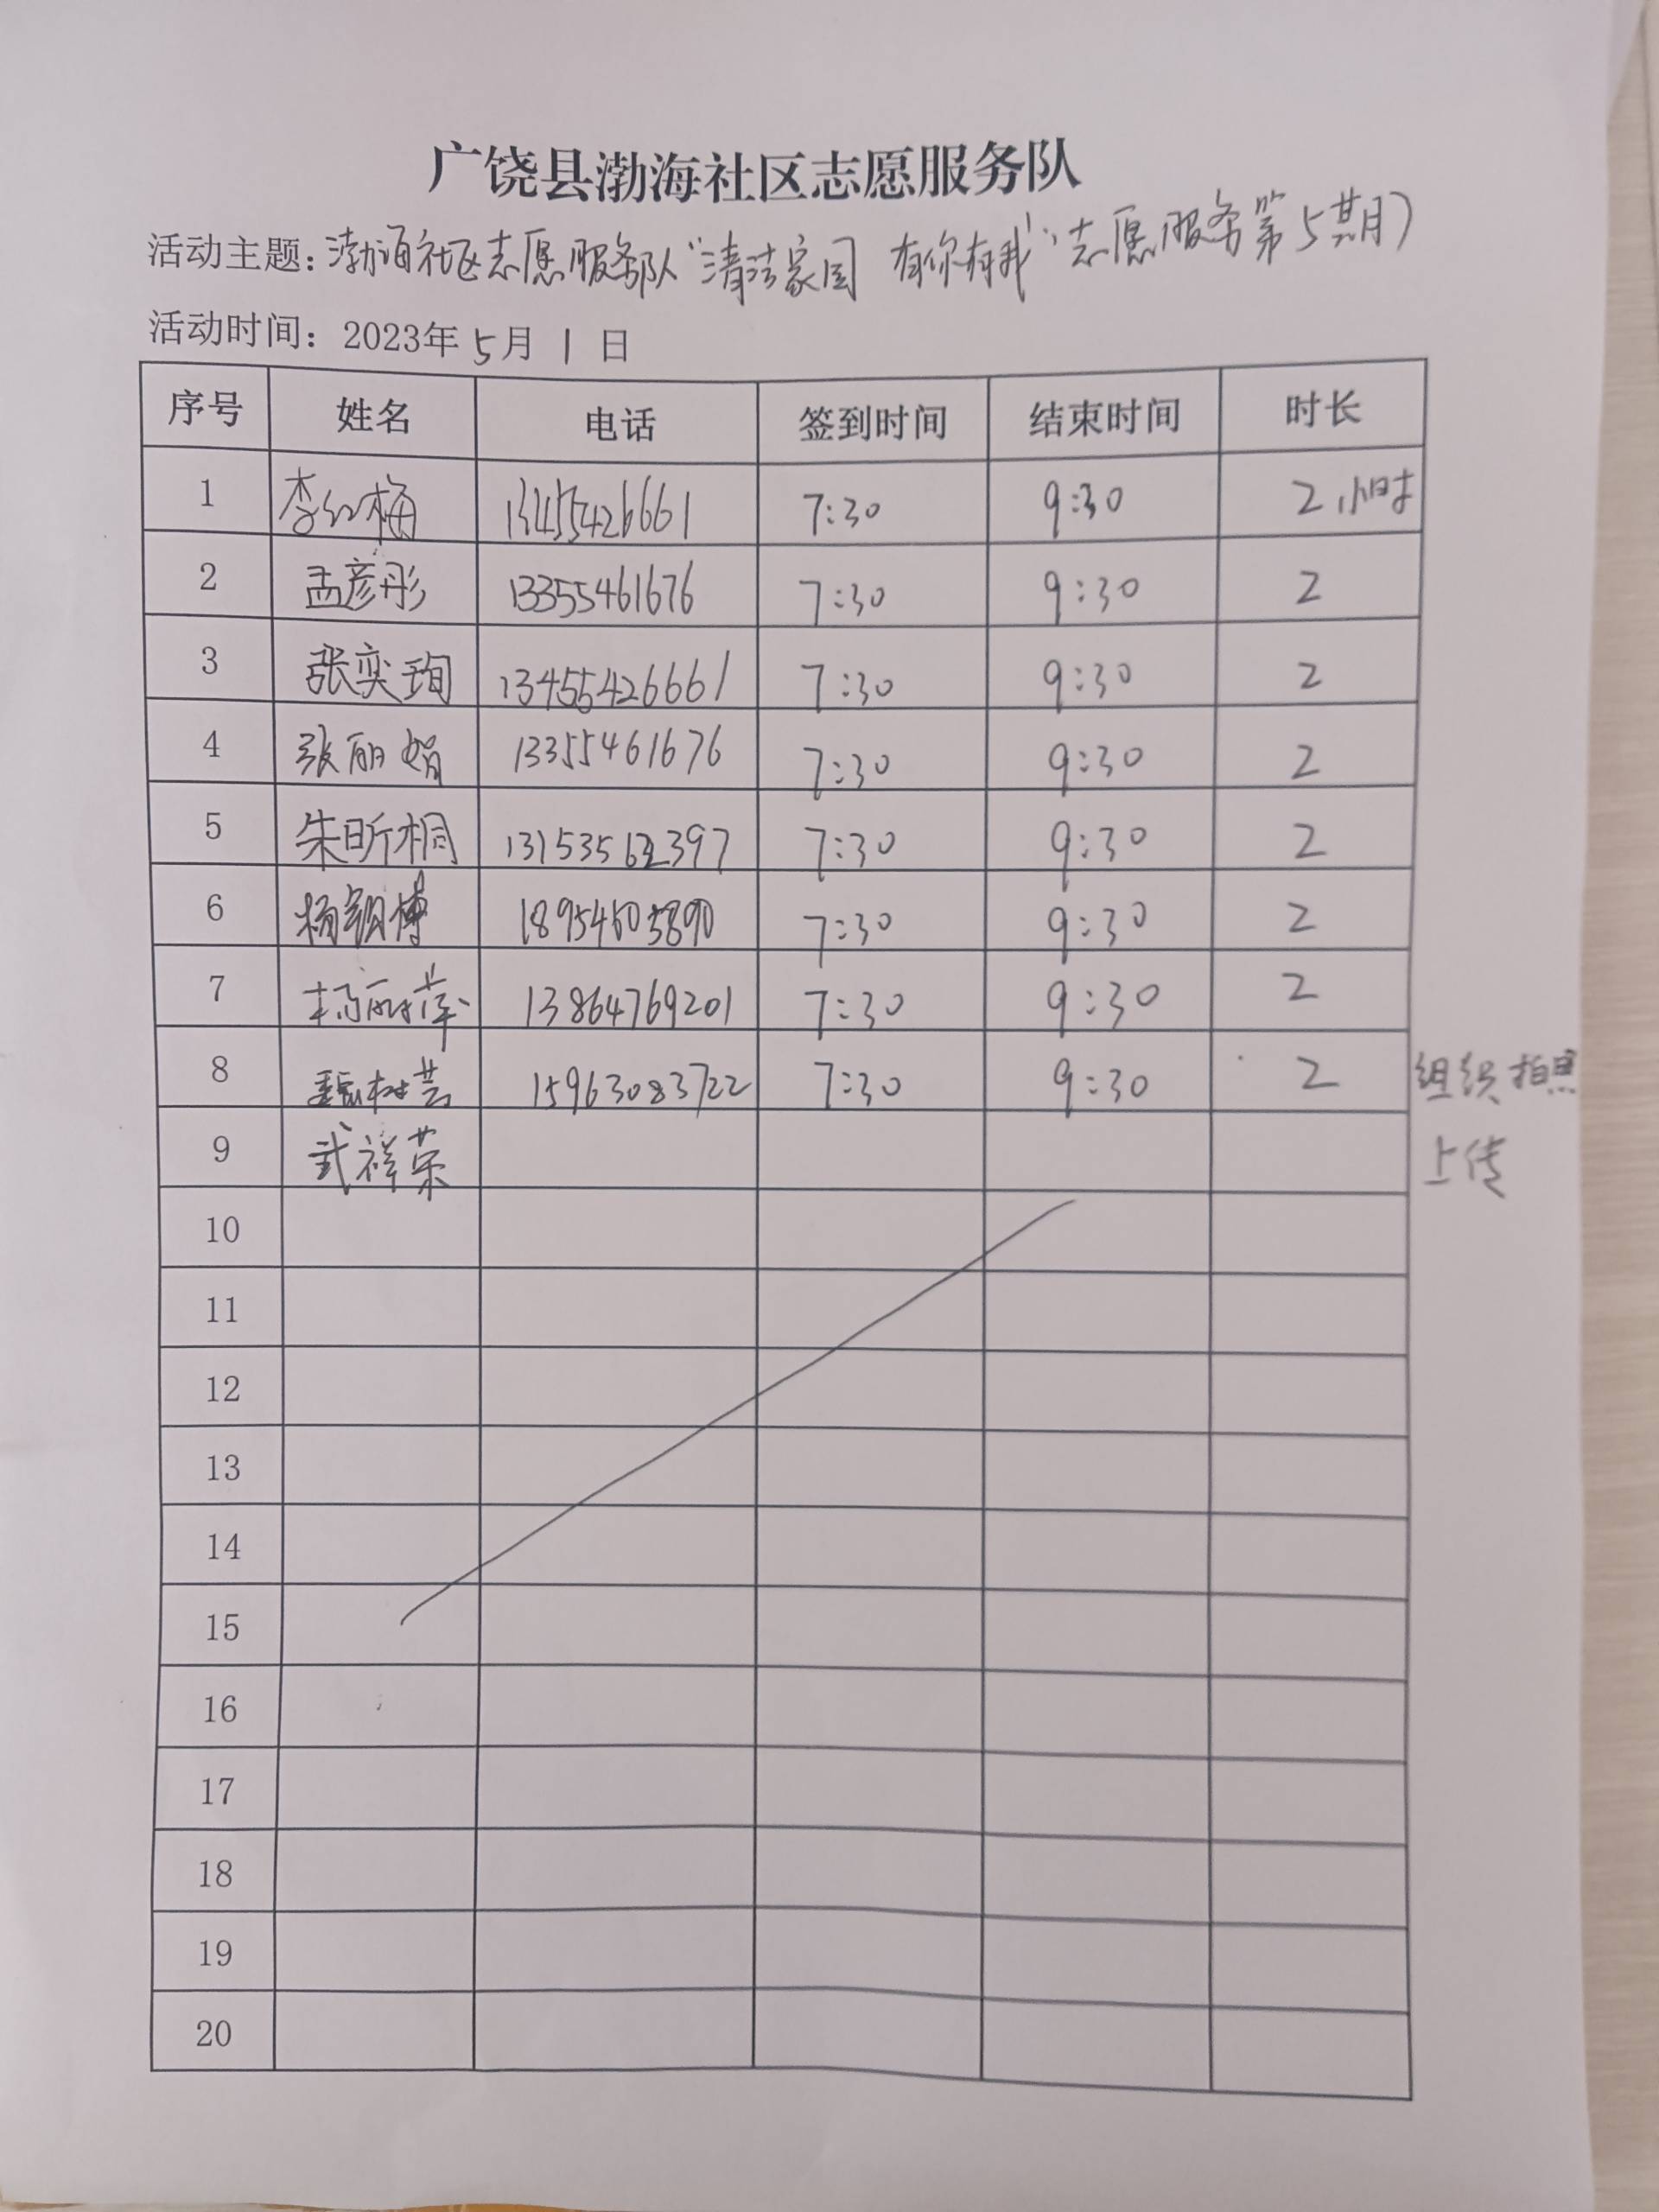 广饶县渤海社区志愿服务队
活动主题：渤海社区志愿服务队“清洁家园 有你有我”志愿服务第5期)
活动时间：2023年5月1日
序号 姓名 电话 签到时间 结束时间 时长
1 李红梅 13455426661 7:30 9:30 2小时
2 孟彦彤 13355461676 7:30 9:30 2
3 张奕珣 13455426661 7:30 9:30 2
4 张丽娟 13355461676 7:30 9:30 2
5 朱昕桐 7:30 9:30 2
6 杨 博 7:30 9:30 2
7 杨丽萍 13864769201 7:30 9:30 2
8 魏树芸 15963083722 7:30 9:30 2 组织拍照
9 武祥荣 上传
10
11
12
13
14
15
16
17
18
19
20